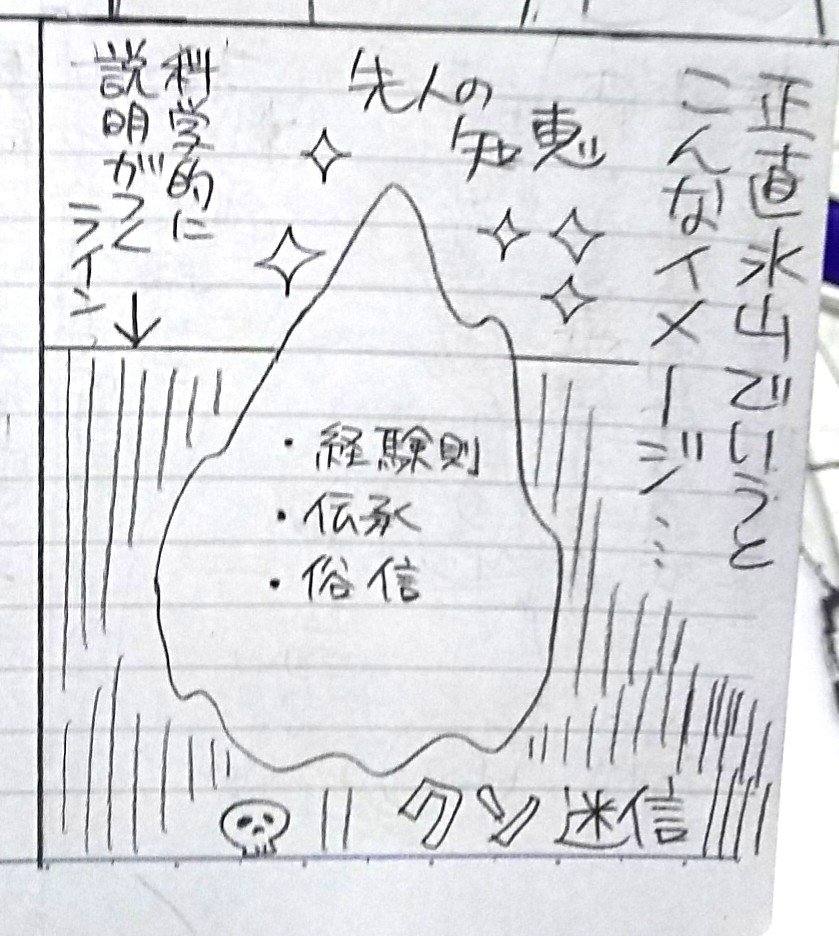 正直氷山でいうと
こんなイメージ…
先人の
知恵
科学的に
説明がつく
ライン
・経験則
・伝承
・俗信
クソ迷信